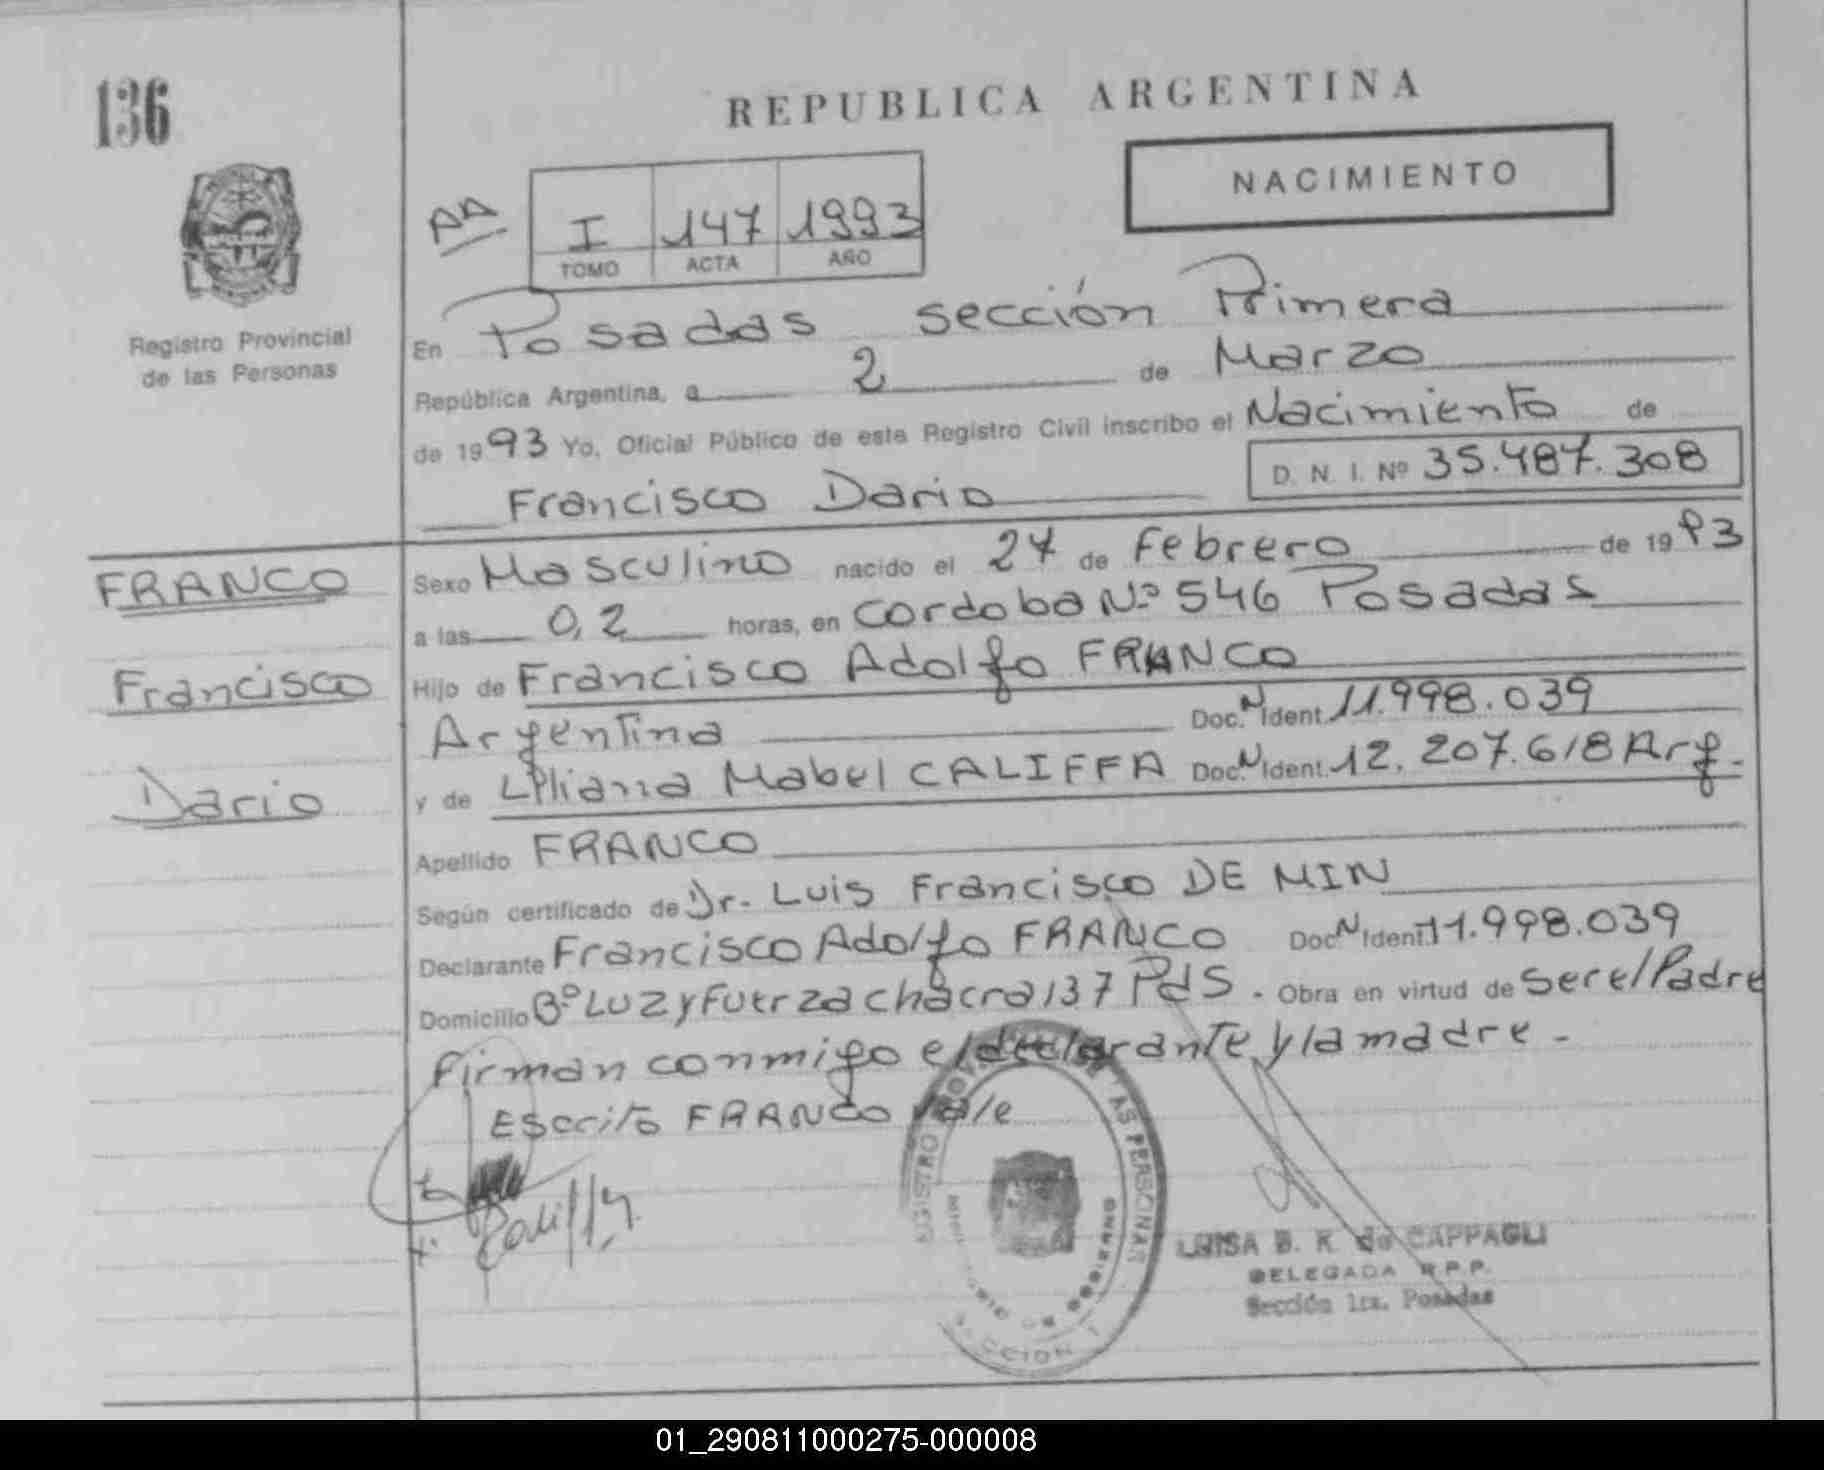 136
REPUBLICA ARGENTINA
NACIMIENTO
AA
I 147 1993
TOMO ACTA AÑO
Registro Provincial
de las Personas
En Posadas sección Primera
República Argentina, a 2 de Marzo
de 1993 Yo, Oficial Público de este Registro Civil inscribo el Nacimiento de
D. N. I. Nº 35.487.308
Francisco Dario
FRANCO
Francisco
Dario
Sexo Masculino nacido el 27 de Febrero de 1993
a las 0,2 horas, en Cordoba Nº 546 Posadas
Hijo de Francisco Adolfo FRANCO
Argentina Doc. N Ident. 11.998.039
y de Liliana Mabel CALIFFA Doc. N Ident. 12.207.618 Arg.
Apellido FRANCO
Según certificado de Dr. Luis Francisco DE MIN
Declarante Francisco Adolfo FRANCO Doc. N Ident. 11.998.039
Domicilio Bº Luz y Fuerza chacra 137 Pds. Obra en virtud de ser el Padre
Firman conmigo el declarante y la madre.-
Escrito FRANCO vale
LUISA B. K. de CAPPAGLI
DELEGADA R.P.P.
Sección 1ra. Posadas
01_290811000275-000008